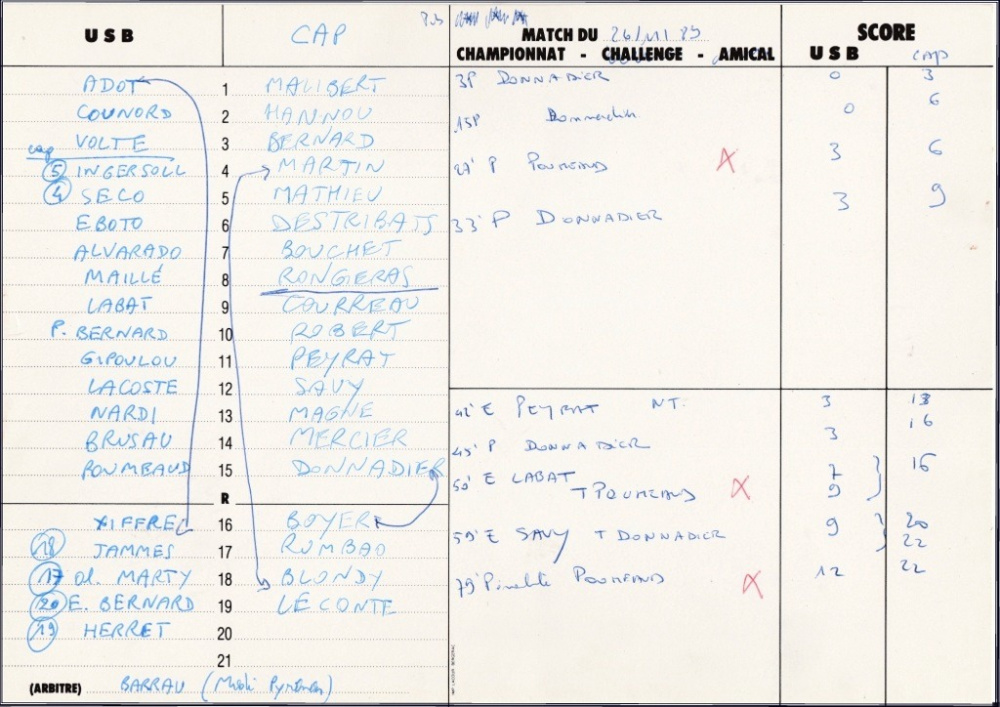 USB CAP MATCH DU 26/VII 89 SCORE
CHAMPIONNAT - CHALLENGE - AMICAL USB CAP
ADOT 1 MALIBERT 3P DONNADIER 0 3
COUNORD 2 HANNOU 15P Donnadier 0 6
cap VOLTE 3 BERNARD
5 INGERSOLL 4 MARTIN 27' P POUMEAUD X 3 6
4 SECO 5 MATHIEU
EBOTO 6 DESTRIBATS 33' P DONNADIER 3 9
ALVARADO 7 BOUCHET
MAILLÉ 8 RONGIERAS
LABAT 9 COURREAU
P. BERNARD 10 ROBERT
GIPOULOU 11 PEYRAT
LACOSTE 12 SAVY
NARDI 13 MAGNE 42' E PEYRAT NT. 3 13
BRUSAU 14 MERCIER 45' P DONNADIER 3 16
POUMBAUD 15 DONNADIER 50' E LABAT 7 16
R T POUMEAUD X 9
XIFFRE 16 BOYER 59' E SAVY T DONNADIER 9 20
18 JAMMES 17 ROMBAO 22
17 Ol. MARTY 18 BLONDY 79' Pénalité POUMEAUD X 12 22
20 E. BERNARD 19 LECONTE
19 HERRET 20
21
(ARBITRE) BARRAU (Midi Pyrénées)